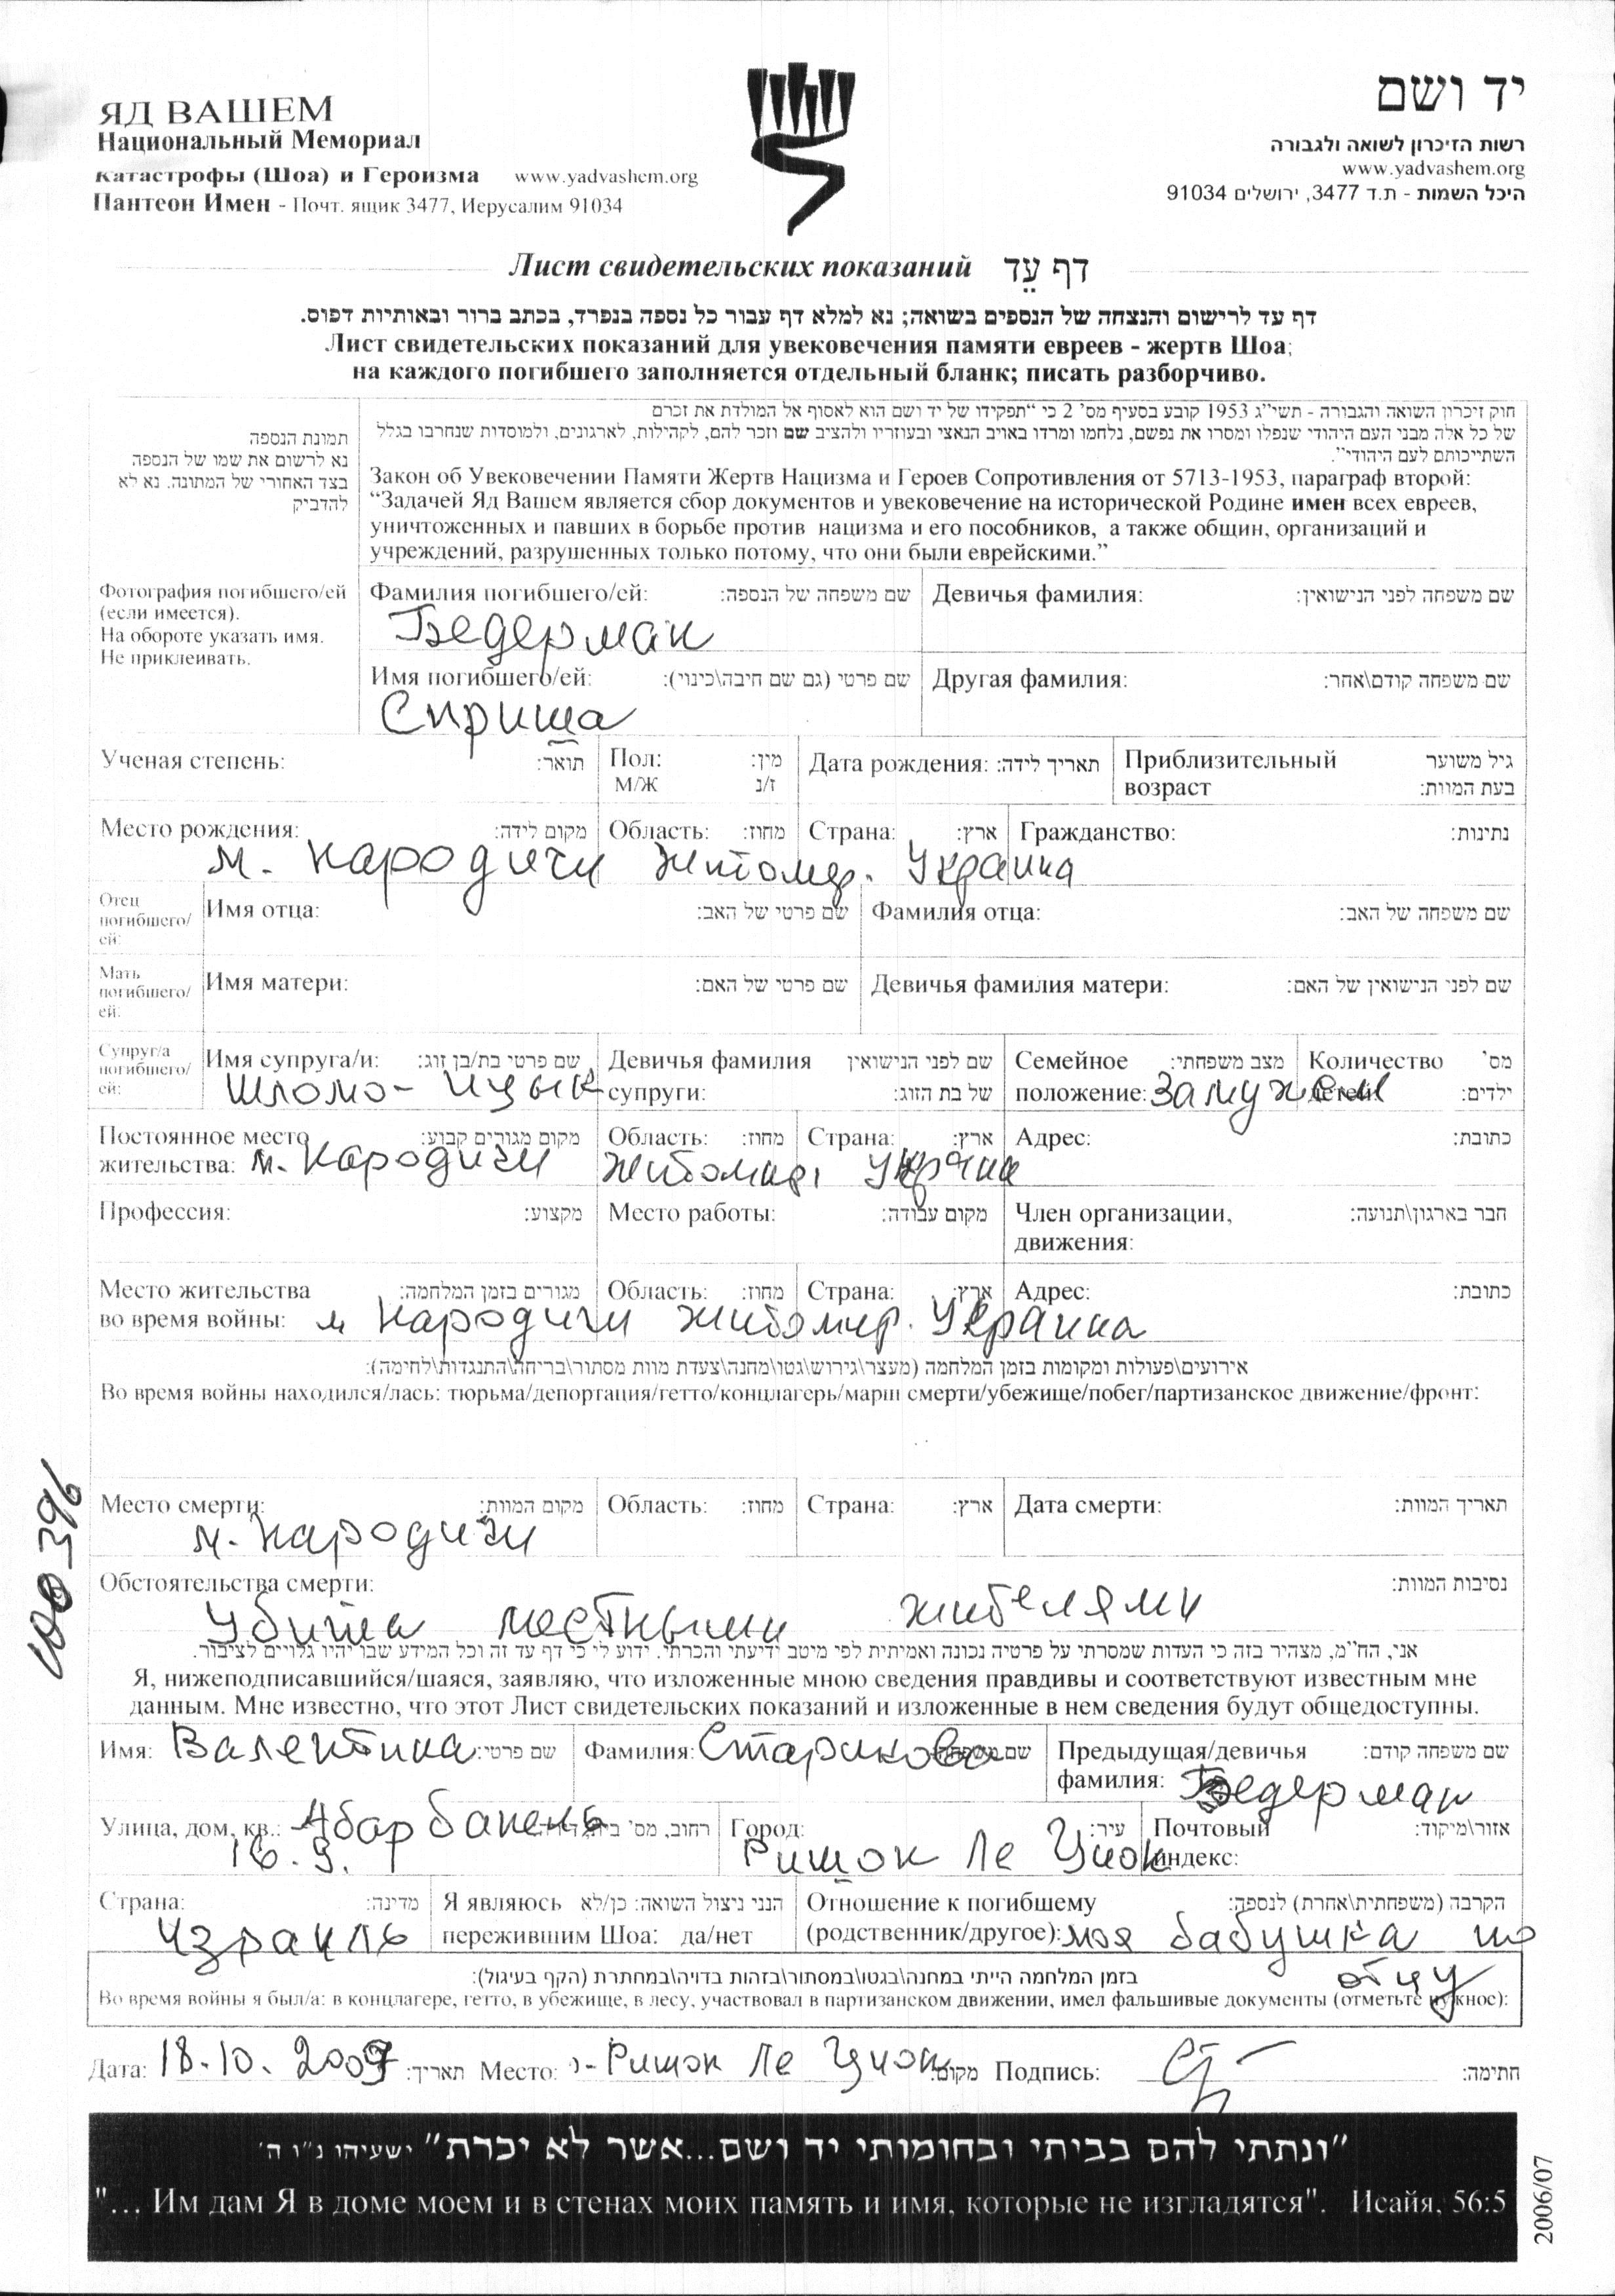 ЯД ВАШЕМ
Национальный Мемориал
катастрофы (Шоа) и Героизма www.yadvashem.org
Пантеон Имен - Почт. ящик 3477, Иерусалим 91034
יד ושם
רשות הזיכרון לשואה ולגבורה
www.yadvashem.org
היכל השמות - ת.ד 3477, ירושלים 91034
Лист свидетельских показаний דף עֵד
דף עד לרישום והנצחה של הנספים בשואה; נא למלא דף עבור כל נספה בנפרד, בכתב ברור ובאותיות דפוס.
Лист свидетельских показаний для увековечения памяти евреев - жертв Шоа;
на каждого погибшего заполняется отдельный бланк; писать разборчиво.
תמונת הנספה
נא לרשום את שמו של הנספה
בצד האחורי של המתונה. נא לא
להדביק
חוק זיכרון השואה והגבורה - תשי״ג 1953 קובע בסעיף מס' 2 כי “תפקידו של יד ושם הוא לאסוף אל המולדת את זכרם
של כל אלה מבני העם היהודי שנפלו ומסרו את נפשם, נלחמו ומרדו באויב הנאצי ובעוזריו ולהציב שם וזכר להם, לקהילות, לארגונים, ולמוסדות שנחרבו בגלל
השתייכותם לעם היהודי”.
Закон об Увековечении Памяти Жертв Нацизма и Героев Сопротивления от 5713-1953, параграф второй:
“Задачей Яд Вашем является сбор документов и увековечение на исторической Родине имен всех евреев,
уничтоженных и павших в борьбе против нацизма и его пособников, а также общин, организаций и
учреждений, разрушенных только потому, что они были еврейскими.”
Фотография погибшего/ей
(если имеется).
На обороте указать имя.
Не приклеивать.
Фамилия погибшего/ей: שם משפחה של הנספה: Девичья фамилия: שם משפחה לפני הנישואין:
Бедерман
Имя погибшего/ей: שם פרטי (גם שם חיבה\כינוי): Другая фамилия: שם משפחה קודם\אחר:
Сприша
Ученая степень: תואר: Пол: מין: Дата рождения: תאריך לידה: Приблизительный גיל משוער
М/Ж ז/נ возраст בעת המוות:
Место рождения: מקום לידה: Область: מחוז: Страна: ארץ: Гражданство: נתינות:
м. Народичи Житомир. Украина
Отец
погибшего/
ей:
Имя отца: שם פרטי של האב: Фамилия отца: שם משפחה של האב:
Мать
погибшего/
ей:
Имя матери: שם פרטי של האם: Девичья фамилия матери: שם לפני הנישואין של האם:
Супруг/а
погибшего/
ей:
Имя супруга/и: שם פרטי בת/בן זוג: Девичья фамилия שם לפני הנישואין Семейное מצב משפחתי: Количество מס'
Шломо-Ицык супруги: של בת הזוג: положение: Замужем детей: ילדים:
Постоянное место מקום מגורים קבוע: Область: מחוז: Страна: ארץ: Адрес: כתובת:
жительства: м. Народичи Житомир Украина
Профессия: מקצוע: Место работы: מקום עבודה: Член организации, חבר בארגון\תנועה:
движения:
Место жительства מגורים בזמן המלחמה: Область: מחוז: Страна: ארץ: Адрес: כתובת:
во время войны: м Народичи Житомир. Украина
אירועים\פעולות ומקומות בזמן המלחמה (מעצר\גירוש\גטו\מחנה\צעדת מוות מסתור\בריחה\התנגדות\לחימה):
Во время войны находился/лась: тюрьма/депортация/гетто/концлагерь/марш смерти/убежище/побег/партизанское движение/фронт:
Место смерти: מקום המוות: Область: מחוז: Страна: ארץ: Дата смерти: תאריך המוות:
м. Народичи
Обстоятельства смерти: נסיבות המוות:
Убита местными жителями
אני, הח״מ, מצהיר בזה כי העדות שמסרתי על פרטיה נכונה ואמיתית לפי מיטב ידיעתי והכרתי. ידוע לי כי דף עד זה וכל המידע שבו יהיו גלויים לציבור.
Я, нижеподписавшийся/шаяся, заявляю, что изложенные мною сведения правдивы и соответствуют известным мне
данным. Мне известно, что этот Лист свидетельских показаний и изложенные в нем сведения будут общедоступны.
Имя: Валентина שם פרטי: Фамилия: Старикова שם משפחה: Предыдущая/девичья שם משפחה קודם:
фамилия: Бедерман
Улица, дом, кв.: Абарбанель רחוב, מס' Город: עיר: Почтовый אזור\מיקוד:
16.9. Ришон Ле Цион индекс:
Страна: מדינה: Я являюсь הנני ניצול השואה: כן/לא Отношение к погибшему הקרבה (משפחתית\אחרת) לנספה:
Израиль пережившим Шоа: да/нет (родственник/другое): моя бабушка по
отцу
בזמן המלחמה הייתי במחנה\בגטו\במסתור\בזהות בדויה\במחתרת (הקף בעיגול):
Во время войны я был/а: в концлагере, гетто, в убежище, в лесу, участвовал в партизанском движении, имел фальшивые документы (отметьте нужное):
Дата: 18.10.2009 תאריך: Место: Ришон Ле Цион מקום: Подпись: חתימה:
“ונתתי להם בביתי ובחומותי יד ושם...אשר לא יכרת” ישעיהו נ״ו ה'
"... Им дам Я в доме моем и в стенах моих память и имя, которые не изгладятся". Исайя, 56:5
2006/07